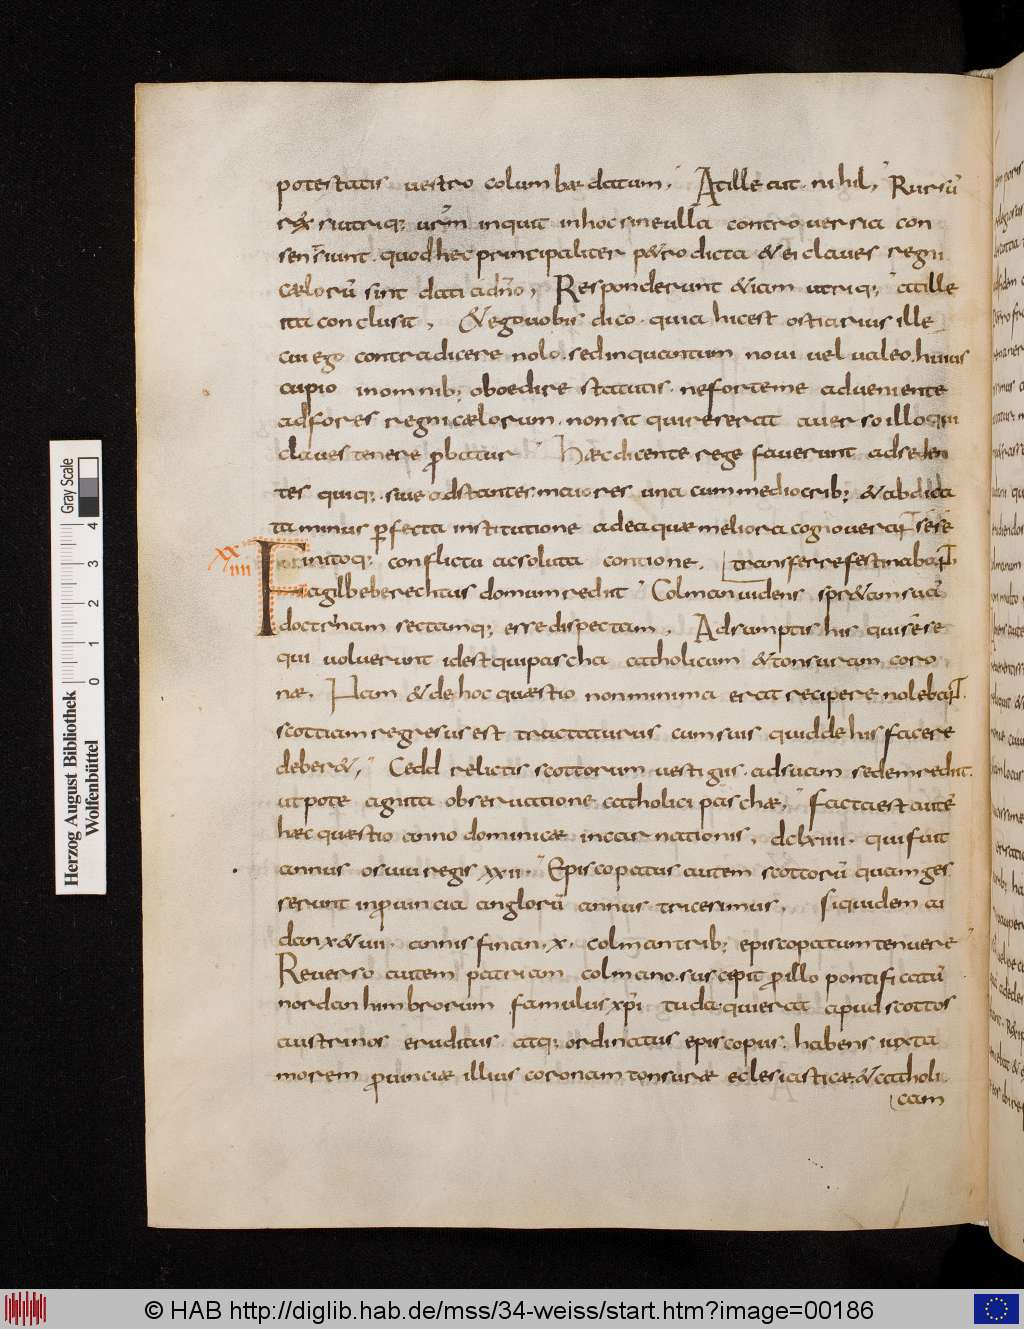 potestatis uestro columbæ datum; At ille ait. nihil; Rursū
rex si utriq; ur̄m inquit in hoc sine ulla controuersia con
sensiunt. quod hęc principaliter p&ro dicta & ei claues regni
cælorū sint dati a dn̄o; Responderunt &iam utriq; at ille
ita conclusit; & ego uobis dico. quia hic est ostiarius ille
cui ego contradicere nolo. sed inquantum noui uel ualeo. huius
cupio in omnib; oboedire statutis. ne forte me adueniente
ad fores regni cælorum. non sit qui reserat auerso illo qui
claues tenere ꝓbatur; Hæc dicente rege fauerunt adseden
tes quiq; siue adstantes maiores una cum mediocrib; & abdica
ta minus ꝑfecta institutione ad ea quæ meliora cognouerant sese
XXIIII Finitoq; conflictu ac soluta contione. transferre festinabant
agilbeberechtus domum rediit; Colman uidens spr&am suā
doctrinam sectamq; esse dispectam. Adsumptis his qui se se
qui uoluerunt id est qui pascha catholicum & tonsuram coro
næ. Nam & de hoc quæstio non minima erat recipere nolebant.
scottiam regresus est tractaturus cum suis quid de his facere
deber&; Cedd relictis scottorum uestigiis. ad suam sedem rediit.
utpote agnita obseruatione catholici paschæ; Facta est autē
hæc quæstio anno dominicæ incarnationis. dclxiiii. qui fuit
annus osuiu regis xxii. Episcopatus autem scottorū quam ges
serunt in ꝓuincia anglorū annus tricesimus. Siquidem ai
dan x&uii. annis finan. x. colman trib; episcopatum tenuere
Reuerso autem patriam colmano. suscepit ꝓ illo pontificatū
nordanhimbrorum famulus xp̄i tuda. qui erat apud scottos
austrinos eruditus atq; ordinatus episcopus. habens iuxta
morem ꝓuinciæ illius coronam tonsuræ eclesiasticæ & catholi
cam
Herzog August Bibliothek
Wolfenbüttel
0 1 2 3 4
Gray Scale
© HAB http://diglib.hab.de/mss/34-weiss/start.htm?image=00186